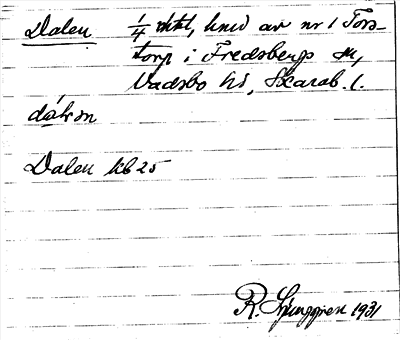 Dalen 1/4 mtl, hmd av nr 1 Fors-
torp i Fredsbergs sn,
Vadsbo hd, Skarab. l.
dáłən
Dalen kb 25
R. Ljunggren 1931